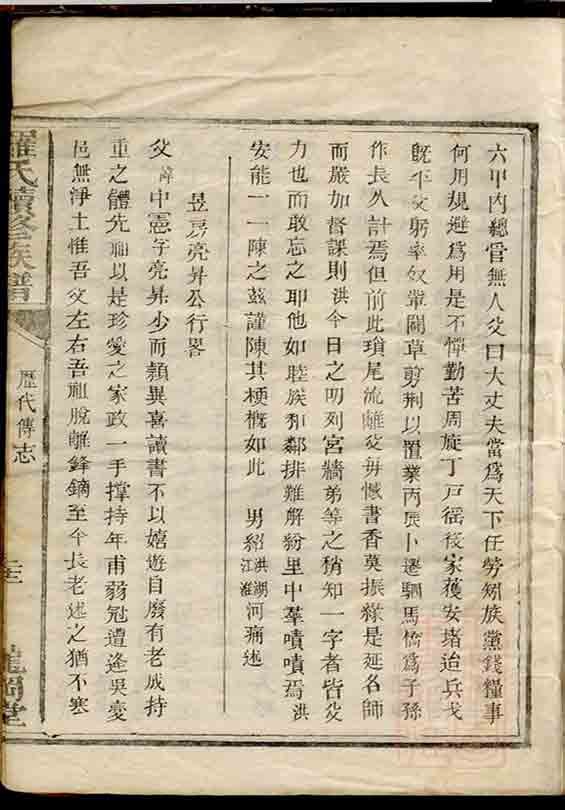 六甲內總管無人父曰大丈夫當爲天下任勞矧族黨錢糧事
何用規避爲用是不憚勤苦周旋丁戸徭役家獲安堵迨兵戈
旣平父躬率奴輩闢草剪荆以置業丙辰卜遷駟馬橋爲子孫
作長久計焉但前此瑣尾流離父每憾書香莫振緣是延名師
而嚴加督課則洪今日之叨列宮牆弟等之稍知一字者皆父
力也而敢忘之耶他如睦族和鄰排難解紛里中羣嘖嘖焉洪
安能一一陳之茲謹陳其梗概如此 男紹洪湖江淮河痛述
昱房亮昇公行畧
父諱中憲字亮昇少而穎異喜讀書不以嬉遊自廢有老成持
重之體先祖以是珍愛之家政一手撑持年甫弱冠遭逢吳變
邑無淨土惟吾父左右吾祖脫離鋒鏑至今長老述之猶不寒
羅氏續修族譜
歷代傳志